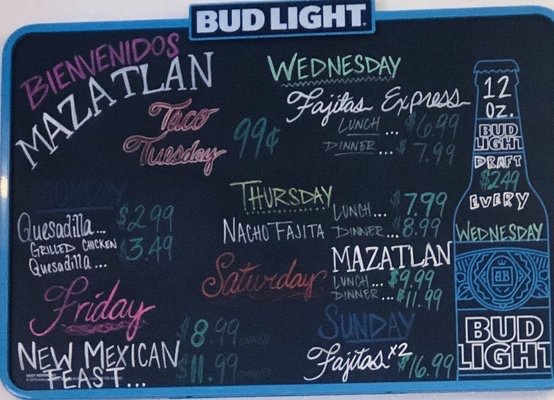 BUD LIGHT
BIENVENIDOS
MAZATLAN
Taco
Tuesday 99¢
Quesadilla... $2.99
GRILLED CHICKEN
Quesadilla... $3.49
Friday
NEW MEXICAN
FEAST...
$8.99 LUNCH
$11.99 DINNER
WEDNESDAY
Fajitas Express
LUNCH... $6.99
DINNER... $7.99
THURSDAY
NACHO FAJITA
LUNCH... $7.99
DINNER... $8.99
Saturday
MAZATLAN
LUNCH... $9.99
DINNER... $11.99
SUNDAY
Fajitas x2 $16.99
12
OZ.
BUD
LIGHT
DRAFT
$2.49
EVERY
WEDNESDAY
BUD
LIGHT